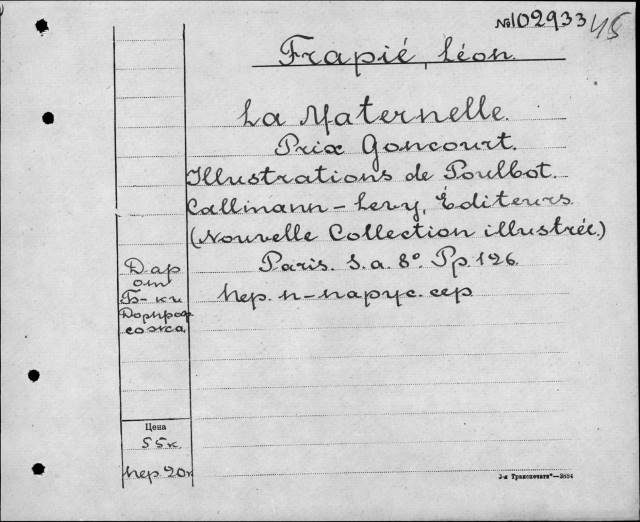 №102933
45
Frapié, Léon.
La Maternelle.
Prix Goncourt.
Illustrations de Poulbot.
Callmann-Levy, Éditeurs.
(Nouvelle Collection illustrée.)
Paris. S.a. 8º. Pp. 126.
пер. п-парус. сер.
Дар
от
Б-ки
Дорпроф
сожа.
Цена
55к.
пер 20к
3-я Транспечать—3684